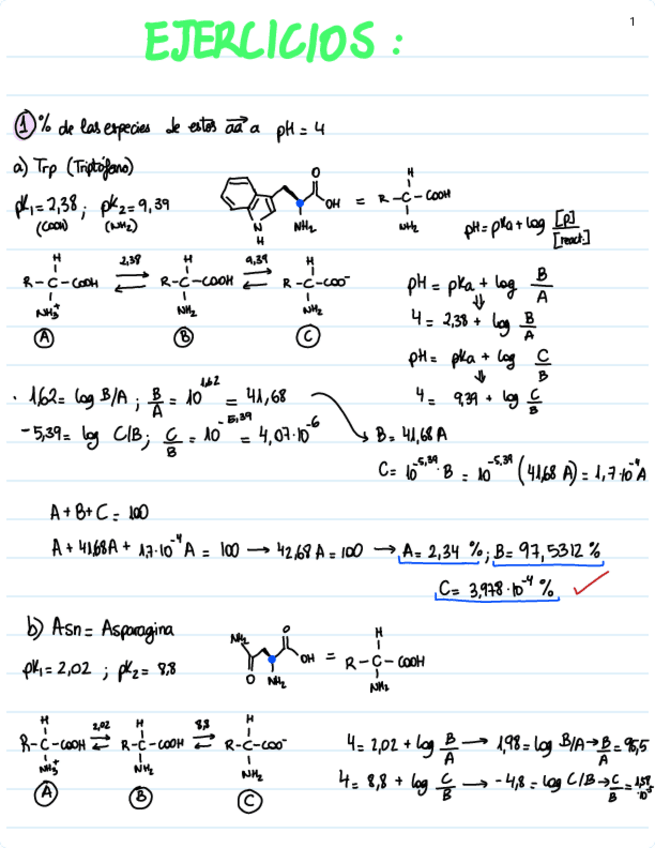 1
EJERCICIOS :
① % de las especies de estos aa a pH = 4
a) Trp (Triptófano)
pK₁ = 2,38 ; pK₂ = 9,39
(COOH) (NH₂)
O
OH
N
H
NH₂
=
H
R - C - COOH
NH₂
pH = pKa + log [P]/[react.]
H 2,38 H 9,39 H
R - C - COOH ⇌ R - C - COOH ⇌ R - C - COO⁻
NH₃⁺ NH₂ NH₂
Ⓐ Ⓑ Ⓒ
pH = pKa + log B/A
⇓
4 = 2,38 + log B/A
pH = pKa + log C/B
⇓
4 = 9,39 + log C/B
· 1,62 = log B/A ; B/A = 10^1,62 = 41,68
-5,39 = log C/B ; C/B = 10^-5,39 = 4,07·10^-6
B = 41,68 A
C = 10^-5,39 · B = 10^-5,39 (41,68 A) = 1,7·10^-4 A
A + B + C = 100
A + 41,68A + 1,7·10^-4 A = 100 → 42,68 A = 100 → A = 2,34 % ; B = 97,5312 %
C = 3,978·10^-4 % ✓
b) Asn = Asparagina
pK₁ = 2,02 ; pK₂ = 8,8
NH₂
O
O
OH
NH₂
=
H
R - C - COOH
NH₂
H 2,02 H 8,8 H
R - C - COOH ⇌ R - C - COOH ⇌ R - C - COO⁻
NH₃⁺ NH₂ NH₂
Ⓐ Ⓑ Ⓒ
4 = 2,02 + log B/A → 1,98 = log B/A → B/A = 95,5
4 = 8,8 + log C/B → -4,8 = log C/B → C/B = 1,58·10^-5